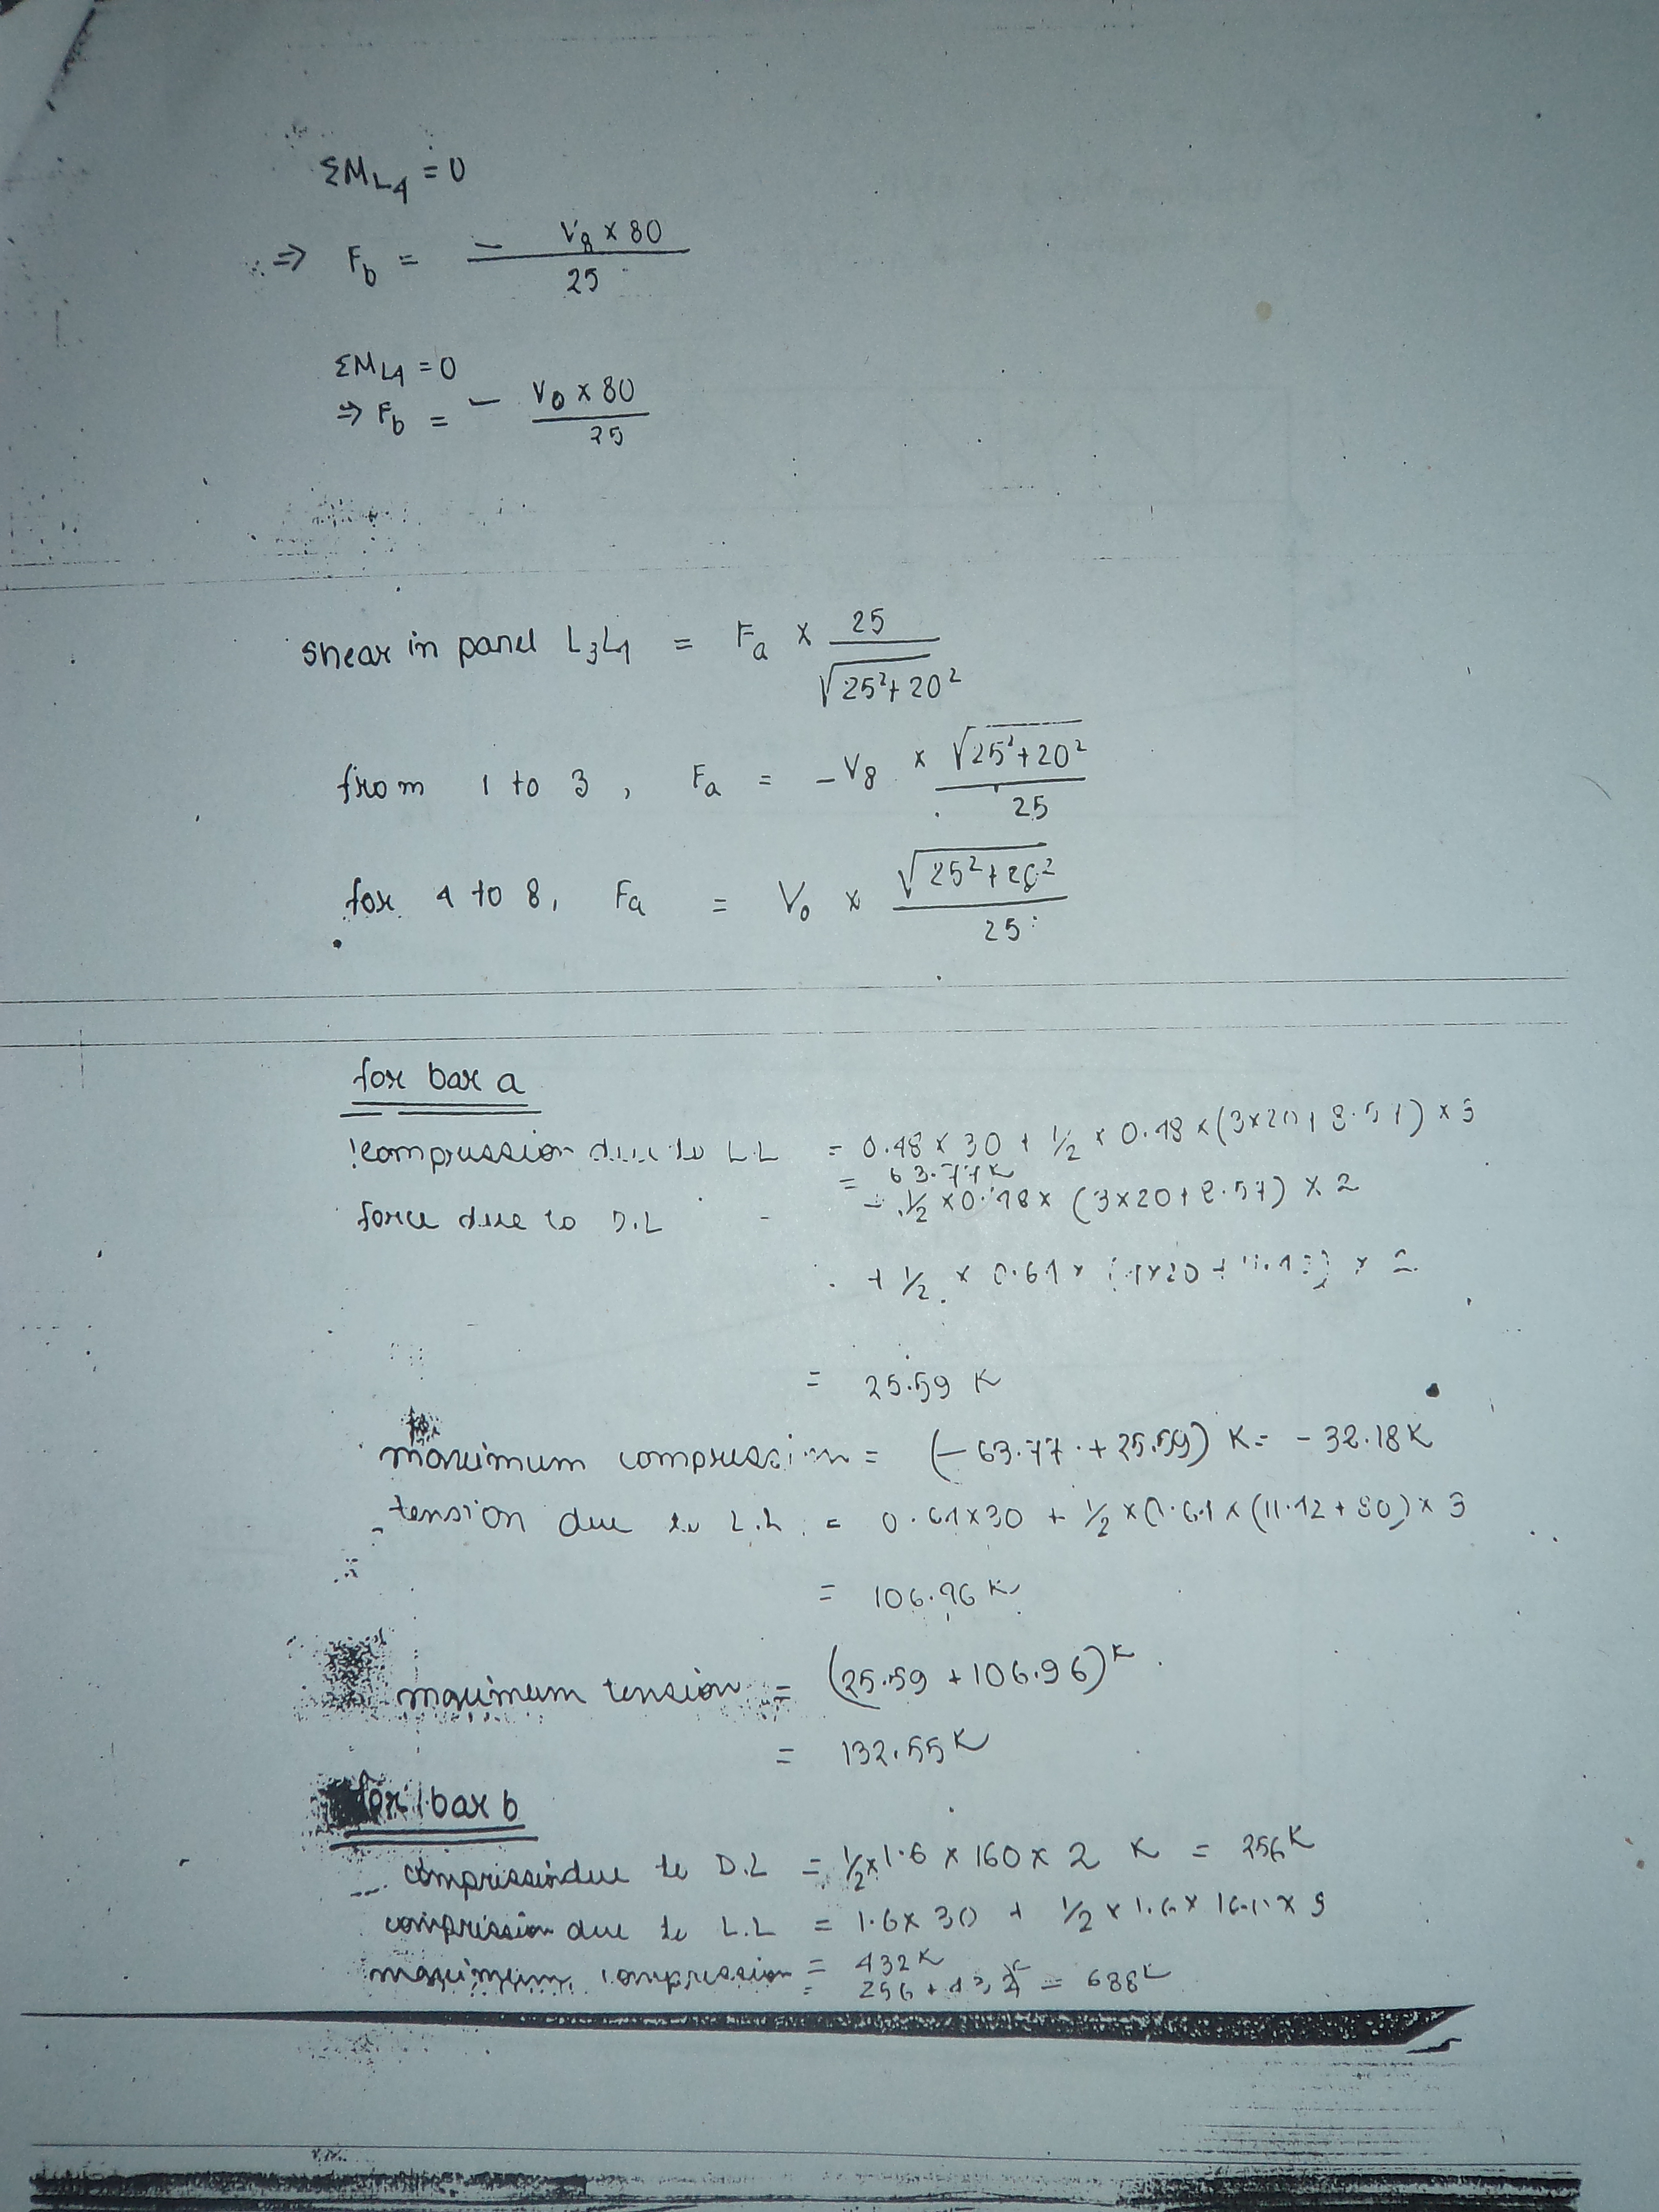 ΣM_L4 = 0
⇒ F_b = - V_8 × 80 / 25
ΣM_L4 = 0
⇒ F_b = - V_0 × 80 / 25
shear in panel L_3L_4 = F_a × 25 / √25²+20²
from 1 to 3, F_a = -V_8 × √25²+20² / 25
for 4 to 8, F_a = V_0 × √25²+20² / 25
for bar a
compression due to L.L = 0.48 × 30 + 1/2 × 0.48 × (3×20+8.57) × 3
= 63.77 K
force due to D.L = - 1/2 × 0.48 × (3×20+8.57) × 2
+ 1/2 × 0.64 × (4×20 +
= 25.59 K
maximum compression = (-63.77 + 25.59) K = -32.18 K
tension due to L.L. = 0.64×30 + 1/2 × 0.64 × (11.42 + 80) × 3
= 106.96 K
maximum tension = (25.59 + 106.96)K
= 132.55 K
for bar b
compression due to D.L = 1/2 × 1.6 × 160 × 2 K = 256 K
compression due to L.L = 1.6 × 30 + 1/2 × 1.6 × 160 × 3
= 432 K
maximum compression = 256 + 432 = 688 K